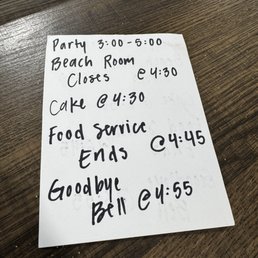 Party 3:00-5:00
Beach Room
Closes @4:30
Cake @ 4:30
Food Service
Ends @4:45
Goodbye
Bell @4:55